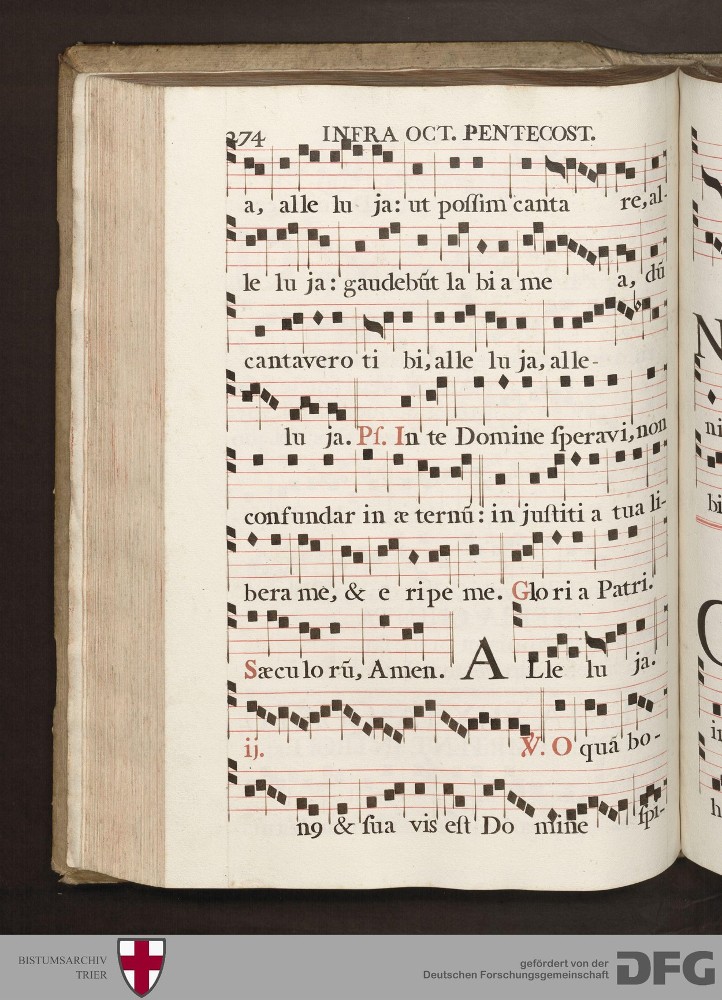 274 INFRA OCT. PENTECOST.
a, alle lu ja: ut poſſim canta re, al-
le lu ja: gaudebūt la bi a me a, dū
cantavero ti bi, alle lu ja, alle-
lu ja. Pſ. In te Domine ſperavi, non
confundar in æ ternū: in juſtiti a tua li-
bera me, & e ripe me. Glo ri a Patri.
Sæculo rū, Amen. A Lle lu ja.
ij. ℣. O quā bo-
n9 & ſua vis eſt Do mine ſpi-
N
ni
bi
in
h
BISTUMSARCHIV
TRIER
gefördert von der
Deutschen Forschungsgemeinschaft
DFG